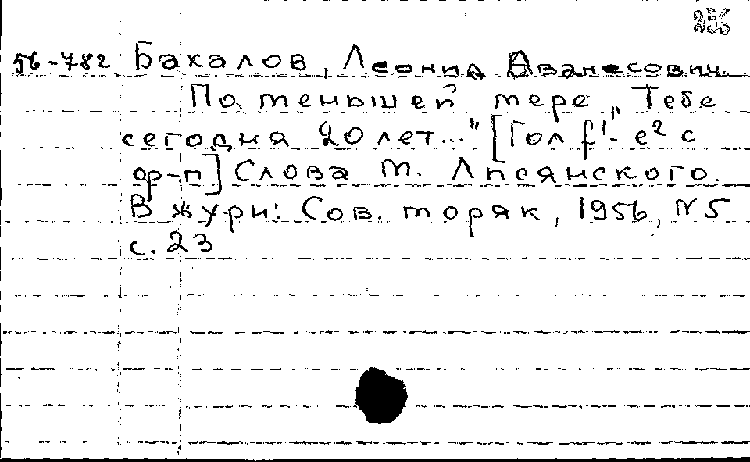 56-782 Бакалов, Леонид Аванесович.
По меньшей мере „Тебе
сегодня 20 лет..." [Гол f'- e² с
ф-п] Слова М. Лисянского.
В журн: Сов. моряк, 1956, N5
с. 23